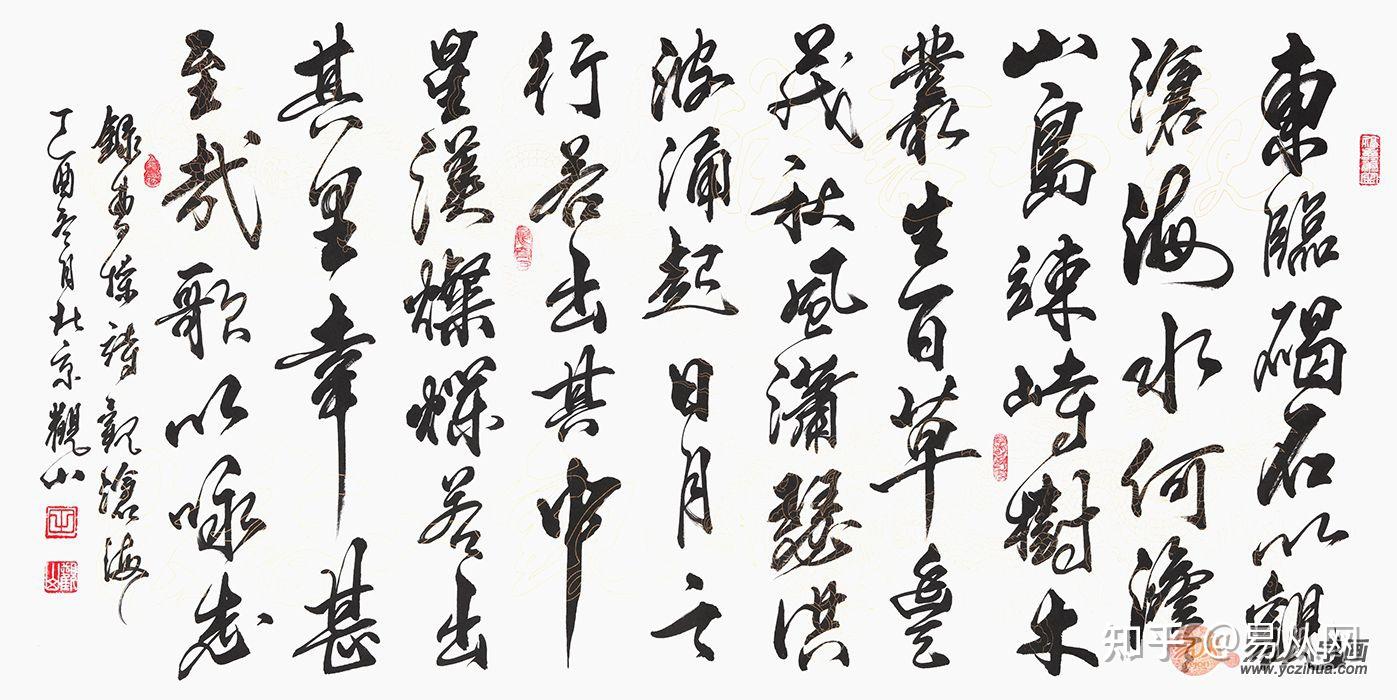 東臨碣石以觀
滄海水何澹
山島竦峙樹木
叢生百草豐
茂秋風瀟瑟洪
波涌起日月之
行若出其中
星漢燦爛若出
其里幸甚
至哉歌以咏志
錄曹操詩觀滄海
丁酉冬月北京觀山
知乎 @易从网
www.yczihua.com